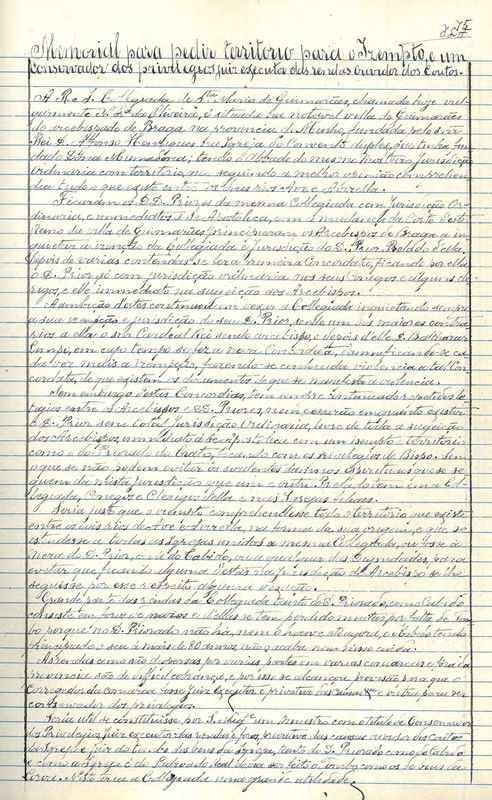 75
Memorial para pedir territorio para o Izempto, e um
conservador dos privilegios, juiz executor das rendas ouvidor dos Coutos.
A R. e I. Collegiada de S.ta Maria de Guimarães, chamada hoje vul-
garmente N. S.ra da Oliveira, é situada na notavel villa de Guimarães
do arcebispado de Braga na provincia do Minho, fundada pelo snr.
Rei D. Affonso Henriques na Egreja do Convento duplex, que tinha fun-
dado Dona Mumadona; tendo o Abbade do mesmo Mosteiro jurisdicção
ordinaria com territorio, que segundo a melhor opinião comprehen-
dia tudo o que existe entre os dous rios Ave e Avizella.
Ficaram os D.D. Priores da mesma Collegiada com jurisdicção Or-
dinaria, e immediatos á Sé Apostolica, com a mudança da Corte d'este
Reino da villa de Guimarães principiaram os Arcebispos de Braga a in-
quietar a izenção da Collegiada e jurisdicção do D. Prior
depois de varias contendas se fez a primeira Concordata, ficando por ella
o D. Prior só com jurisdicção ordinaria nos seus Conegos e alguns cle-
rigos, e elle immediato na sujeição aos Arcebispos.
A ambição d'estes continuou em vexar a Collegiada inquietando sempre
a sua izenção e jurisdicção do seu D. Prior, sendo um dos maiores contra-
rios a ella o snr. Cardeal Rei sendo arcebispo, e depois d'elle D. Balthazar
Limpo, em cujo tempo se fez a nova Concordata,
da vez mais a izempção, fazendo-se conhecida violencia a tal Con-
cordata, de que existem os documentos do que se manifesta a violencia.
Sem embargo d'estas Concordias, tem sempre continuado renhidos li-
tigios entre os Arcebispos e D.D. Priores, nem cessarão emquanto existir
o D. Prior sem total jurisdicção Ordinaria, livre de toda a sujeição
dos Arcebispos, immediato á Sé Apostolica com um izempto e territorio
como o do Priorado do Crato, ficando com os privilegios de Bispo. Sem
o que se não podem evitar os evidentes damnos espirituaes que se se-
guem da mista jurisdicção que um e outro Prelado tem em a Col-
legiada, Conegos e Clerigos d'ella e nas Igrejas
Seria justo que o izempto comprehendesse todo o territorio que existe
entre os dois rios de Ave e Avizella, na forma da sua origem, e que se
estendesse a todas as Igrejas unidas a mesma Collegiada, ou fosse á
meza do D. Prior, ou á do Cabido, ou a qualquer das Dignidades, para
evitar que ficando alguma d'estas na jurisdicção do Arcebispo se lhe
seguisse por esse respeito alguma vexação.
Grande parte das rendas da Collegiada tanto do D. Priorado, como Cabido
consiste em foros e e d'elles se tem perdido muitos por falta de Tom-
bo porque no D. Priorado não ha, nem o houve até agora, e o Cabido tendo
principiado o seu á mais de 80 annos, não o acaba nem n'isso cuida.
As rendas como são dispersas por varias partes em varias comarcas e fóra da
provincia são de difficil cobrança, e por isso se alcançou provisão para que o
Corregedor da comarca fosse juiz executor e privativo das causas e outra para ser
conservador dos privilegios.
Seria util se constituisse por S. Mag.e um Ministro com o titulo de Conservador
dos Privilegios, juiz executor das rendas e foros, privativo das causas ouvidor dos coutos
da Igreja e juiz do tombo dos bens da Igreja, tanto do D. Priorado como do Cabido
e como a Igreja é do Padroado Real devia ser feito o Tombo como os de bens da
Coroa. N'isto teria a Collegiada uma grande utilidade.